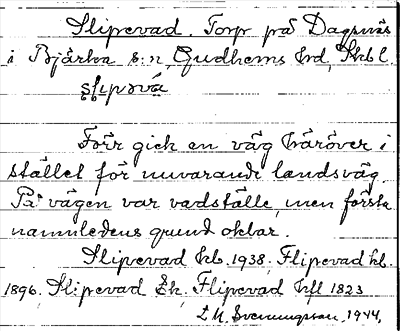 Slipevad. Torp på Dagsnäs
i Bjärka s:n, Gudhems hrd, Skbl.
slɩpəvá
Förr gick en väg häröver i
stället för nuvarande landsväg.
På vägen var vadställe, men första
namnledens grund oklar.
Slipevad kb. 1938, Flipevad kb.
1896, Slipevad Ek. Flipevad hfl 1823
L M Svenungsson 1944,